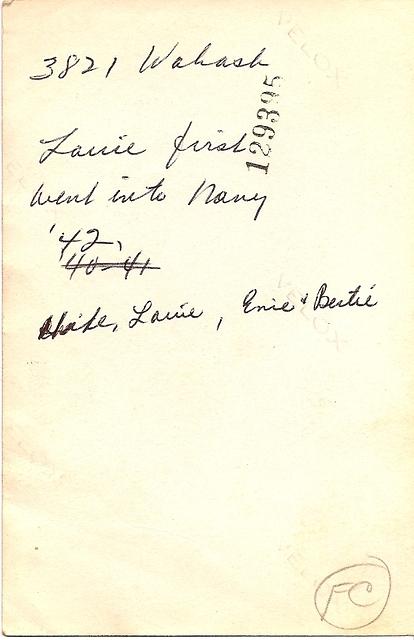 3821 Wabash
129395
Louie first
went into Navy
'42,
40-41
Mike, Louie, Ernie & Bertie
FC
VELOX
VELOX